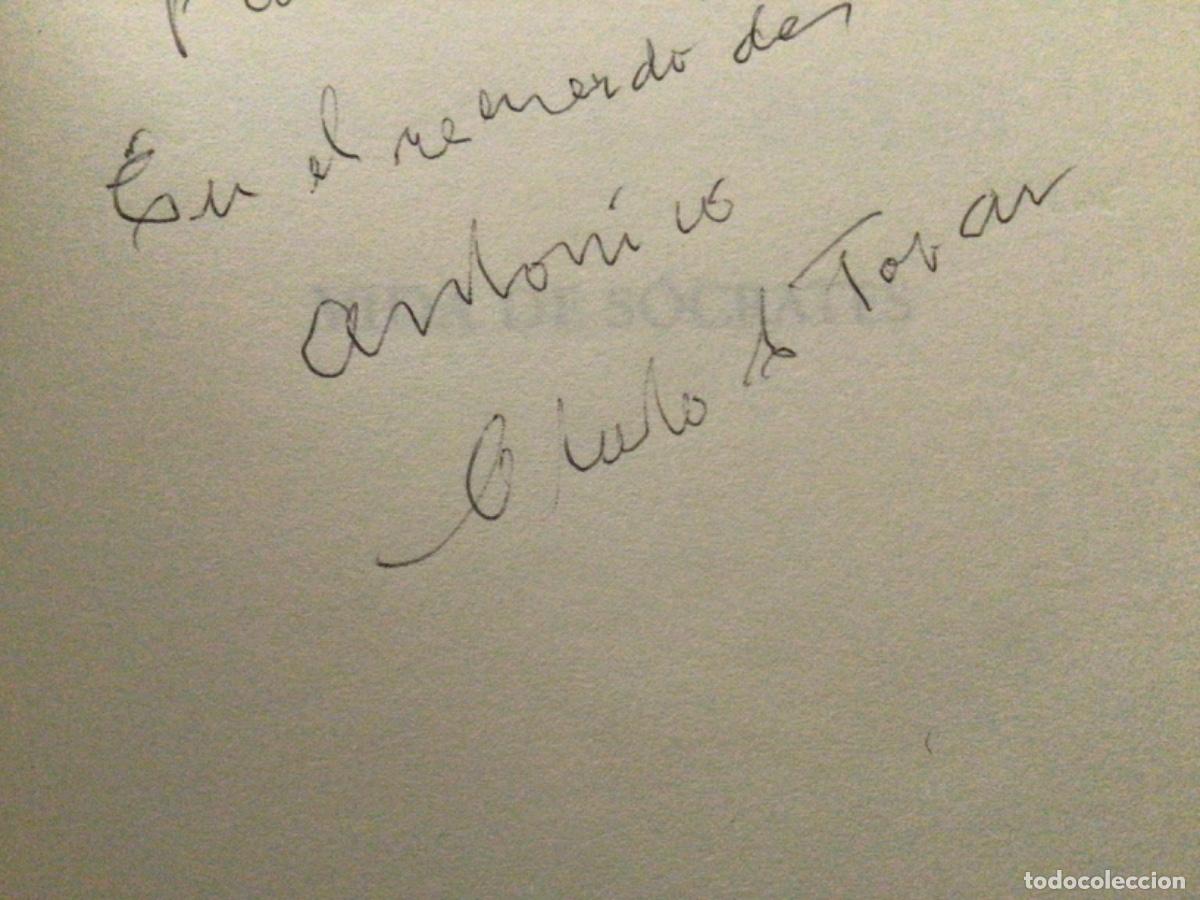 En el recuerdo de
Antonio
VIDA DE SÓCRATES
de Tovar
todocoleccion